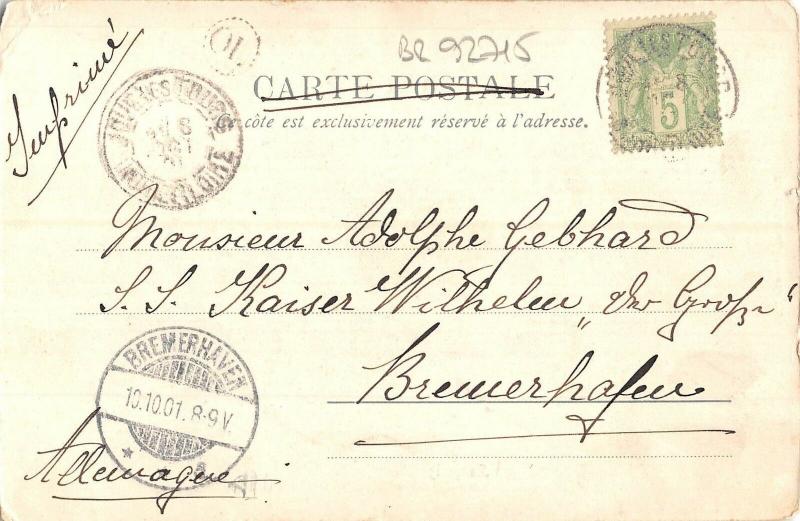 Imprimé
OL
BR 92715
CARTE POSTALE
Ce côté est exclusivement réservé à l'adresse.
JOUÉ-LÈS-TOURS
INDRE-ET-LOIRE
5
Monsieur Adolphe Gebhard
S. S. Kaiser Wilhelm „der Große“
Bremerhafen
BREMERHAVEN
10.10.01. 8-9 V.
Allemagne